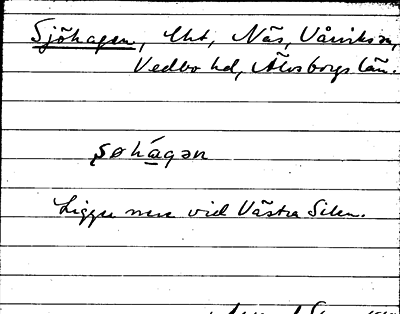 Sjöhagen, lht, Näs, Vårviks sn,
Vedbo hd, Älvsborgs län.
ʂøhágən
Ligger nere vid Västra Silen.